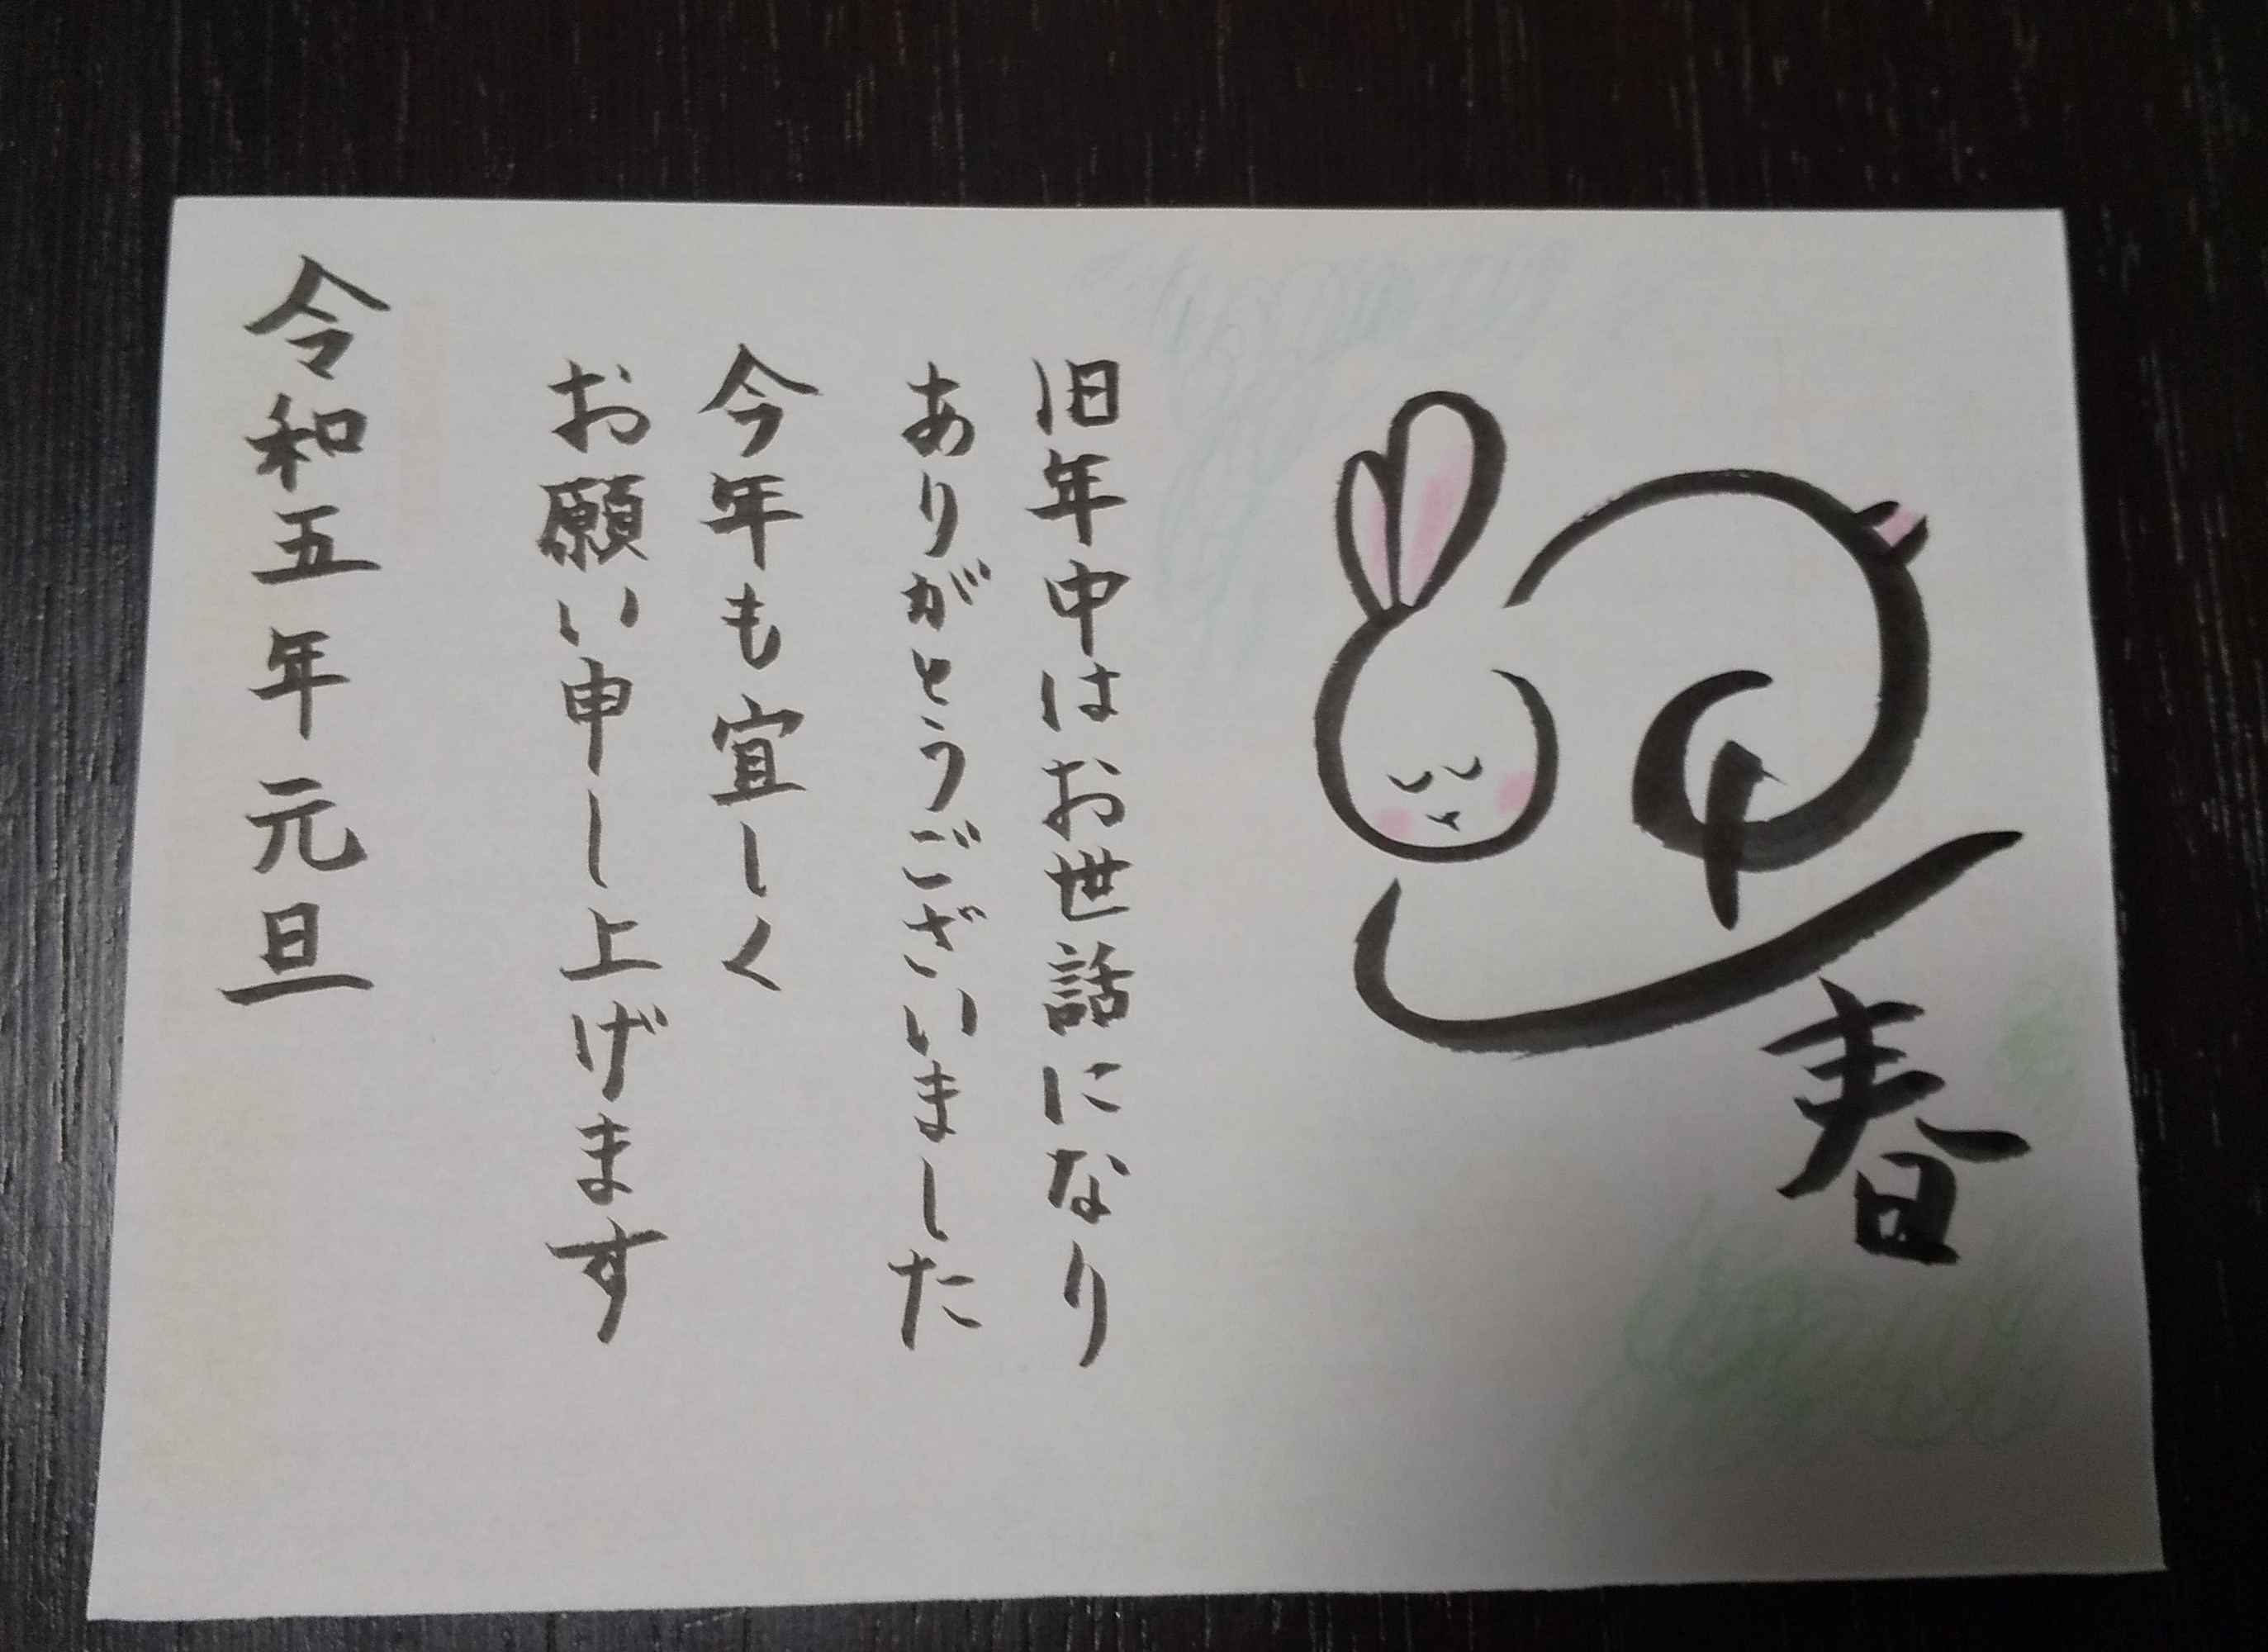 迎春
旧年中はお世話になり
ありがとうございました
今年も宜しく
お願い申し上げます
令和五年元旦